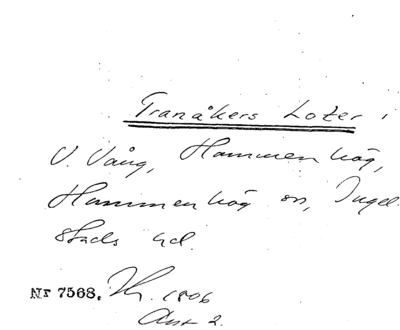 Tranåkers Loter i
V. Vång, Hammenhög,
Hammenhög sn, Ingel-
stads hd.
Nr 7568. Hr. 1806
Ant 2.